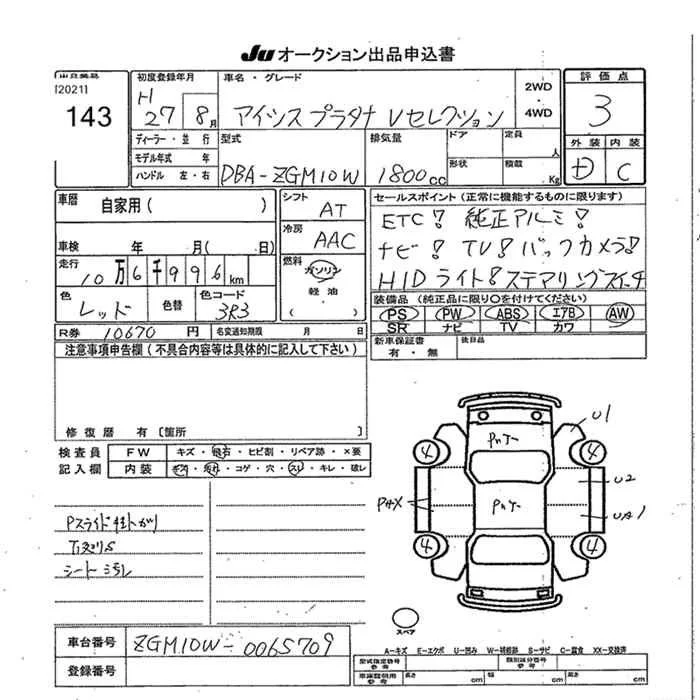 Ju オークション出品申込書
出品番号
[2021]
143
初度登録年月
H 27 8月
ディーラー・並行
モデル年式 年
ハンドル 左・右
車名・グレード
アイシス プラタナ Vセレクション
2WD
・
4WD
型式
DBA-ZGM10W
排気量
1800cc
ドア
定員
人
形状
積載
Kg
評価点
3
外装 内装
D C
車歴
自家用( )
車検 年 月( 日)
走行 10万6千996km
色 レッド
色替
色コード 3R3
シフト AT
冷房 AAC
燃料
ガソリン
軽油
( )
R券 10670 円
名変通知期限 月 日
セールスポイント(正常に機能するものに限ります)
ETC! 純正アルミ!
ナビ! TV! バックカメラ!
HIDライト!
装備品(純正品に限り〇を付けてください)
PS PW ABS エアB AW
SR ナビ TV カワ
新車保証書 有・無
後日品
注意事項申告欄(不具合内容等は具体的に記入して下さい)
修復歴 有〔箇所 〕
検査員
記入欄
FW キズ・飛石・ヒビ割・リペア跡・×要
内装 キズ・汚れ・コゲ・穴・スレ・キレ・破レ
シート汚れ
U1
4 4
U2
UA1
4 4
スペア
車台番号 ZGM10W-0065709
登録番号
A-キズ E-エクボ U-凹み W-補修跡 S-サビ C-腐食 XX-交換済
型式指定番号
参考
類別区分番号
参考
車庫証明用
参考
長さ cm 幅 cm 高さ cm